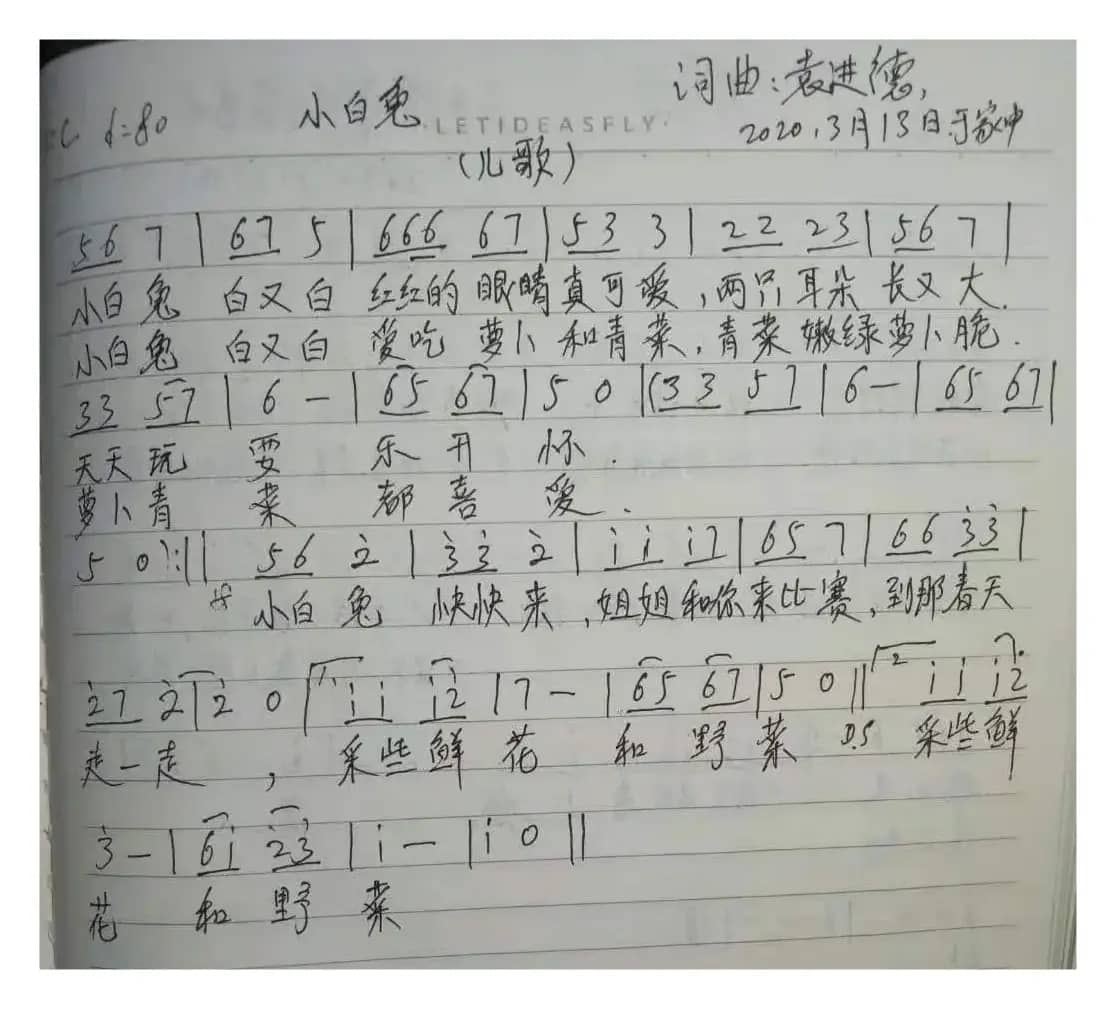 小白兔 词曲：袁进德，
:C ♩=80 ·LETIDEASFLY· 2020.3月13日于家中
（儿歌）
5 6 7 | 6 7 5 | 6 6 6 6 7 | 5 3 3 | 2 2 2 3 | 5 6 7 |
小白兔 白又白 红红的 眼睛真可爱，两只耳朵 长又大.
小白兔 白又白 爱吃 萝卜和青菜，青菜嫩绿萝卜脆.
3 3 5 7 | 6 - | 6 5 6 7 | 5 0 |(3 3 5 7 | 6 - | 6 5 6 7 |
天天玩 耍 乐 开 怀.
萝卜青 菜 都 喜 爱.
5 0):|| 5 6 2̇ | 3̇ 3̇ 2̇ | 1̇ 1̇ 1̇ 7 | 6 5 7 | 6 6 3̇ 3̇ |
小白兔 快快来，姐姐和你来比赛，到那春天
2̇ 7 2̇ | 2̇ 0 | 1. 1̇ 1̇ 1̇ 2̇ | 7 - | 6 5 6 7 | 5 0 || 2 1̇ 1̇ 1̇ 2̇
走一走，采些鲜 花 和 野 菜 D.S 采些鲜
3̇ - | 6 1̇ 2̇ 3̇ | 1̇ - | 1̇ 0 ||
花 和 野 菜